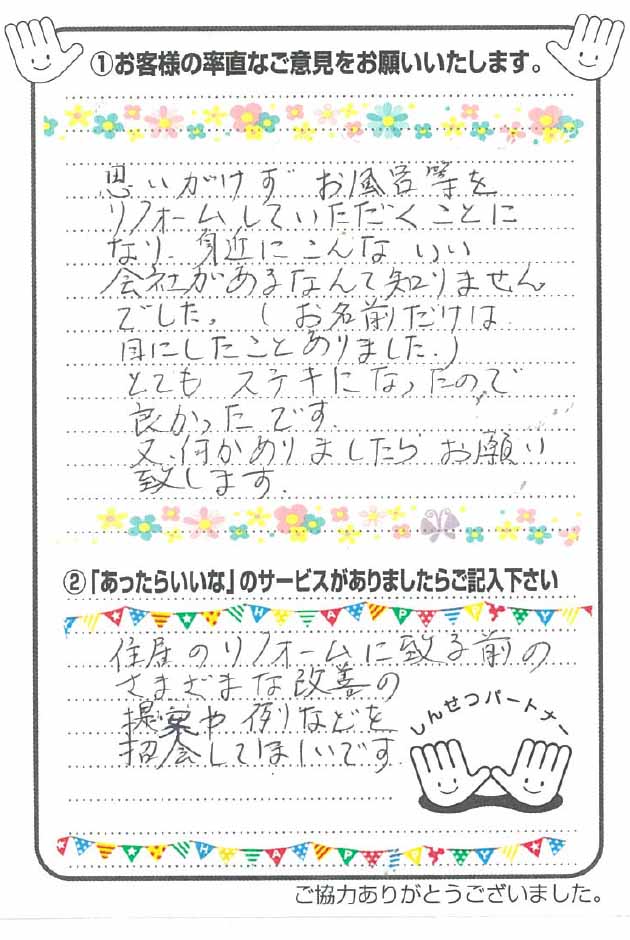 ①お客様の率直なご意見をお願いいたします。
思いがけず お風呂等を
リフォームしていただくことに
なり、身近に こんな いい
会社があるなんて知りません
でした。（お名前だけは
目にしたことありました。）
とても ステキになったので
良かったです。
又、何かありましたら お願い
致します。
②「あったらいいな」のサービスがありましたらご記入下さい
HAPPY
住居のリフォームに致る前の
さまざまな改善の
提案や 例などを
招会してほしいです
しんせつパートナー
HAPPY
ご協力ありがとうございました。